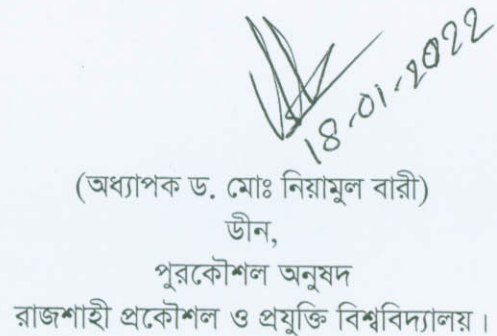 18-01-2022
(অধ্যাপক ড. মোঃ নিয়ামুল বারী)
ডীন,
পুরকৌশল অনুষদ
রাজশাহী প্রকৌশল ও প্রযুক্তি বিশ্ববিদ্যালয়।